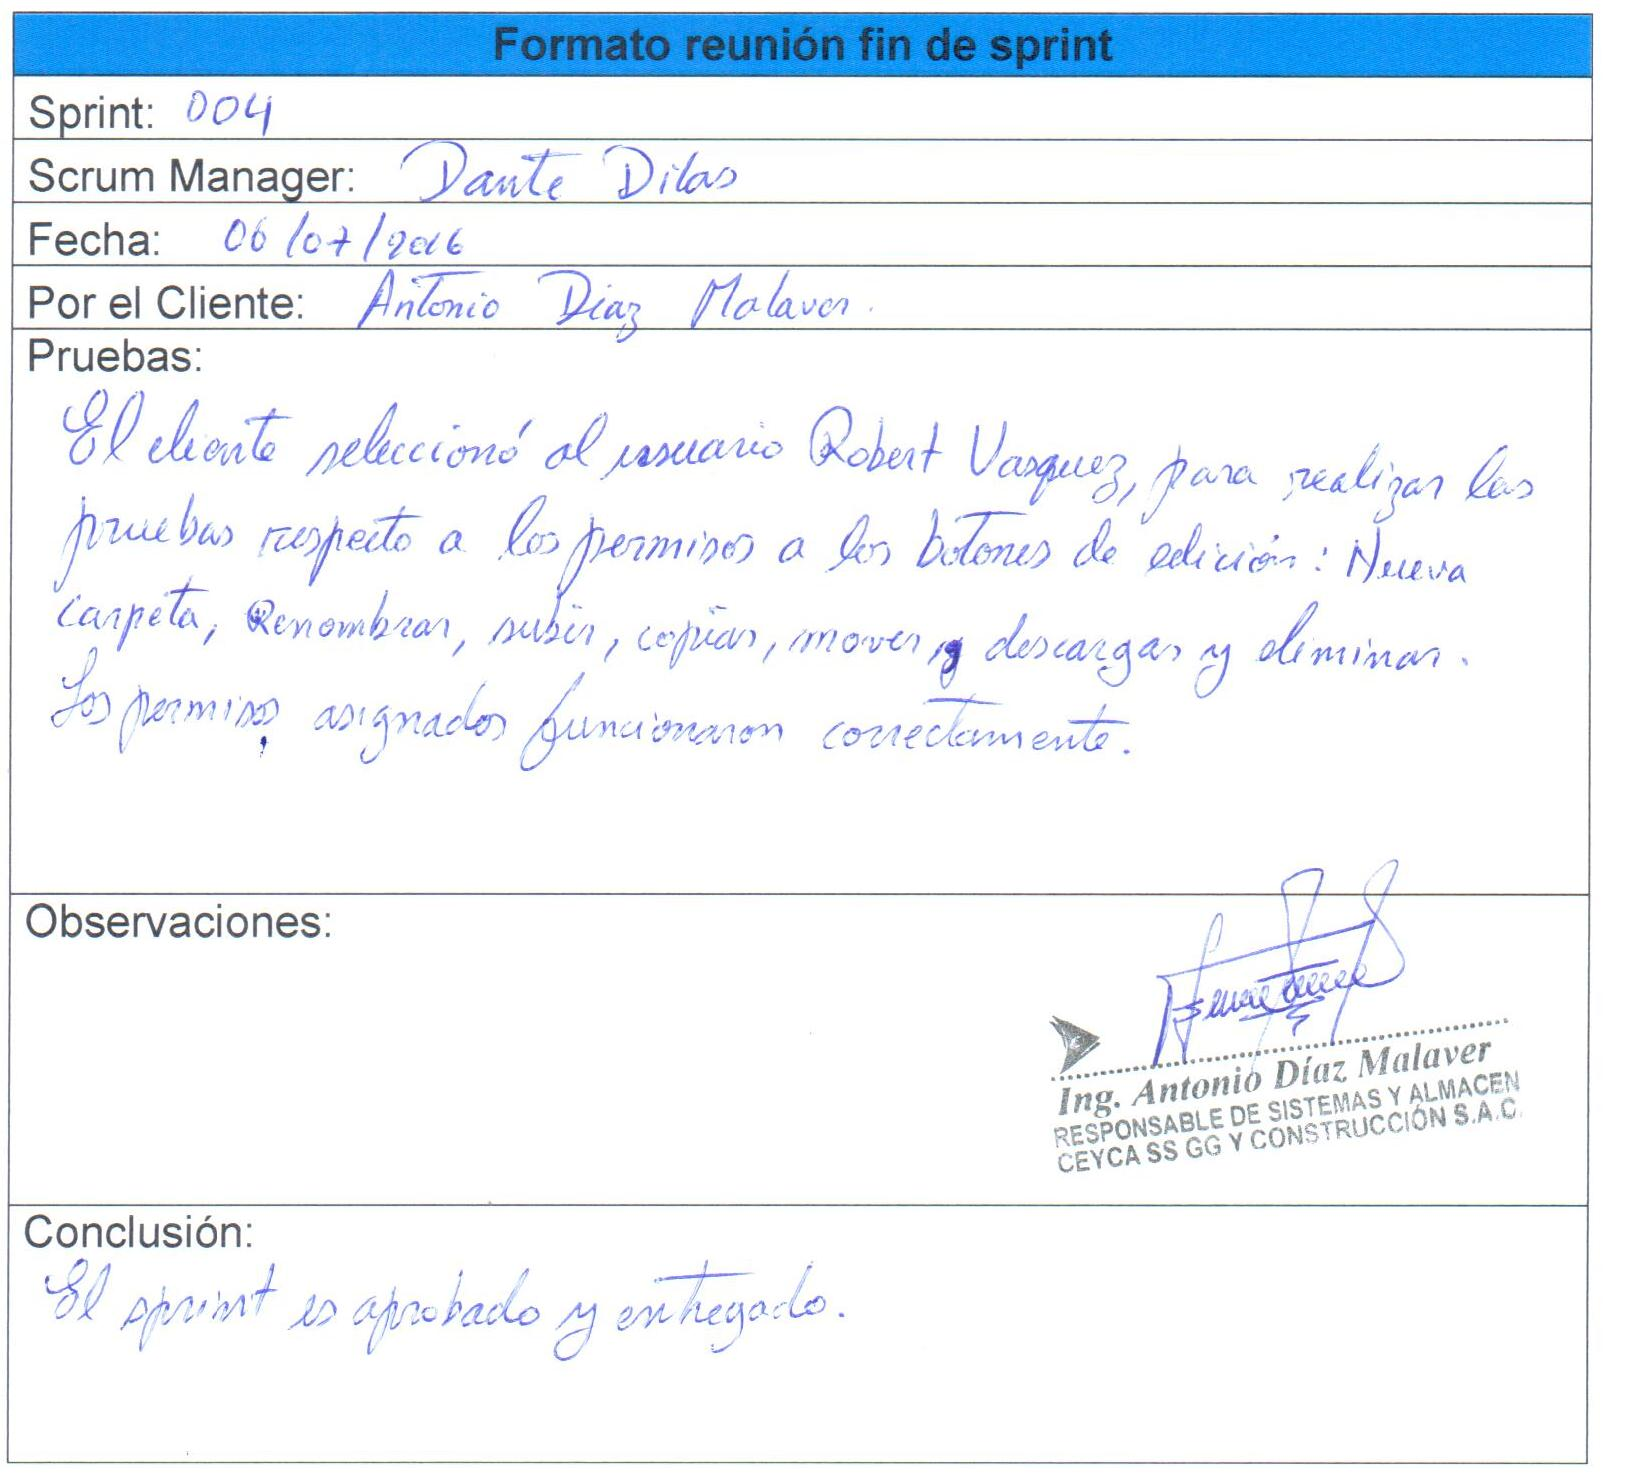 Formato reunión fin de sprint
Sprint: 004
Scrum Manager: Dante Dilas
Fecha: 06/07/2016
Por el Cliente: Antonio Díaz Malaver.
Pruebas:
El cliente seleccionó al usuario Robert Vasquez, para realizar las
pruebas respecto a los permisos a los botones de edición: Nueva
carpeta, Renombrar, subir, copiar, mover, descargar y eliminar.
Los permisos asignados funcionaron correctamente.
Observaciones:
Ing. Antonio Díaz Malaver
RESPONSABLE DE SISTEMAS Y ALMACEN
CEYCA SS GG Y CONSTRUCCIÓN S.A.C.
Conclusión:
El sprint es aprobado y entregado.